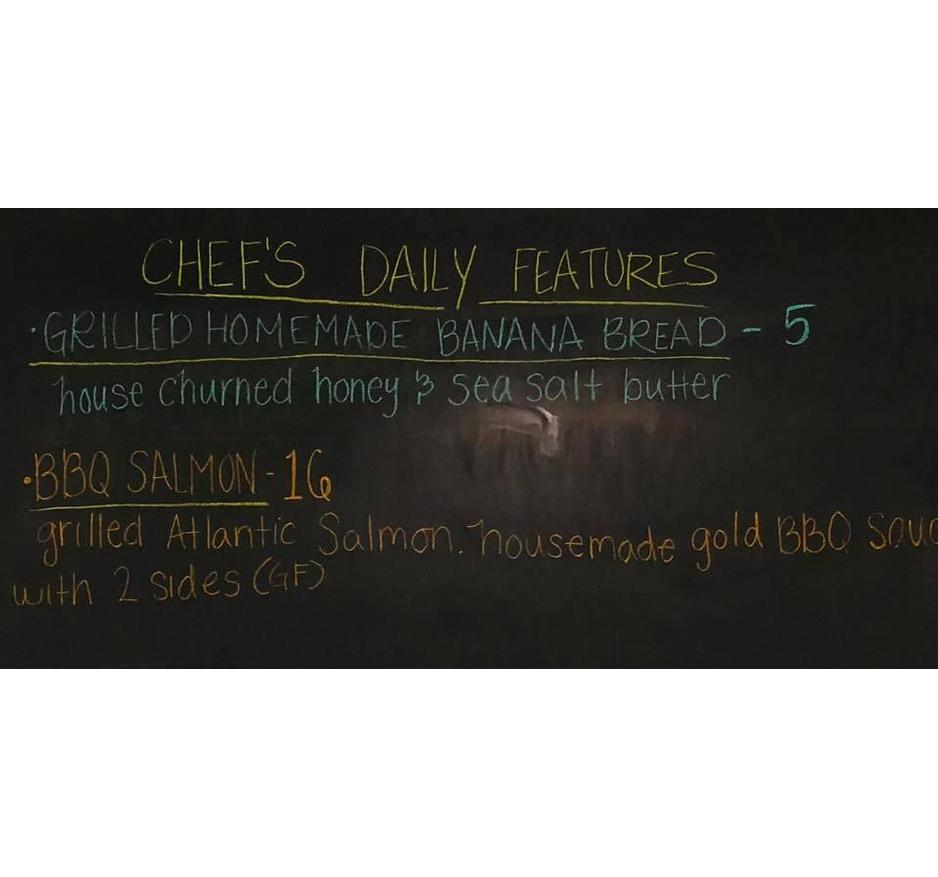 CHEF'S DAILY FEATURES
·GRILLED HOMEMADE BANANA BREAD - 5
house churned honey & sea salt butter
·BBQ SALMON - 16
grilled Atlantic Salmon. housemade gold BBQ Sauc
with 2 sides (GF)